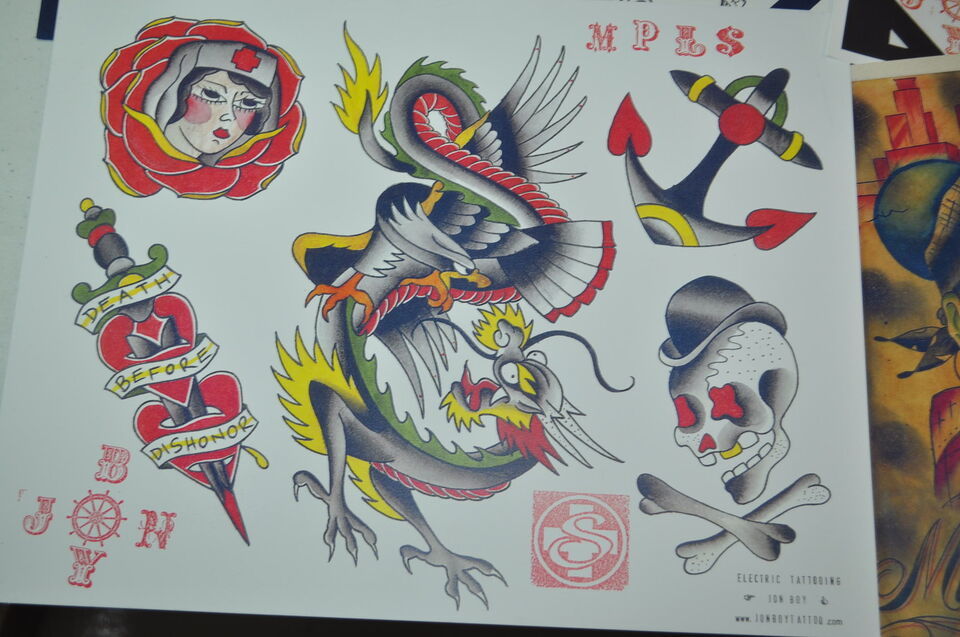 MPLS
DEATH
BEFORE
DISHONOR
B
J N
O
Y
S
ELECTRIC TATTOOING
JON BOY
www.JONBOYTATTOO.com